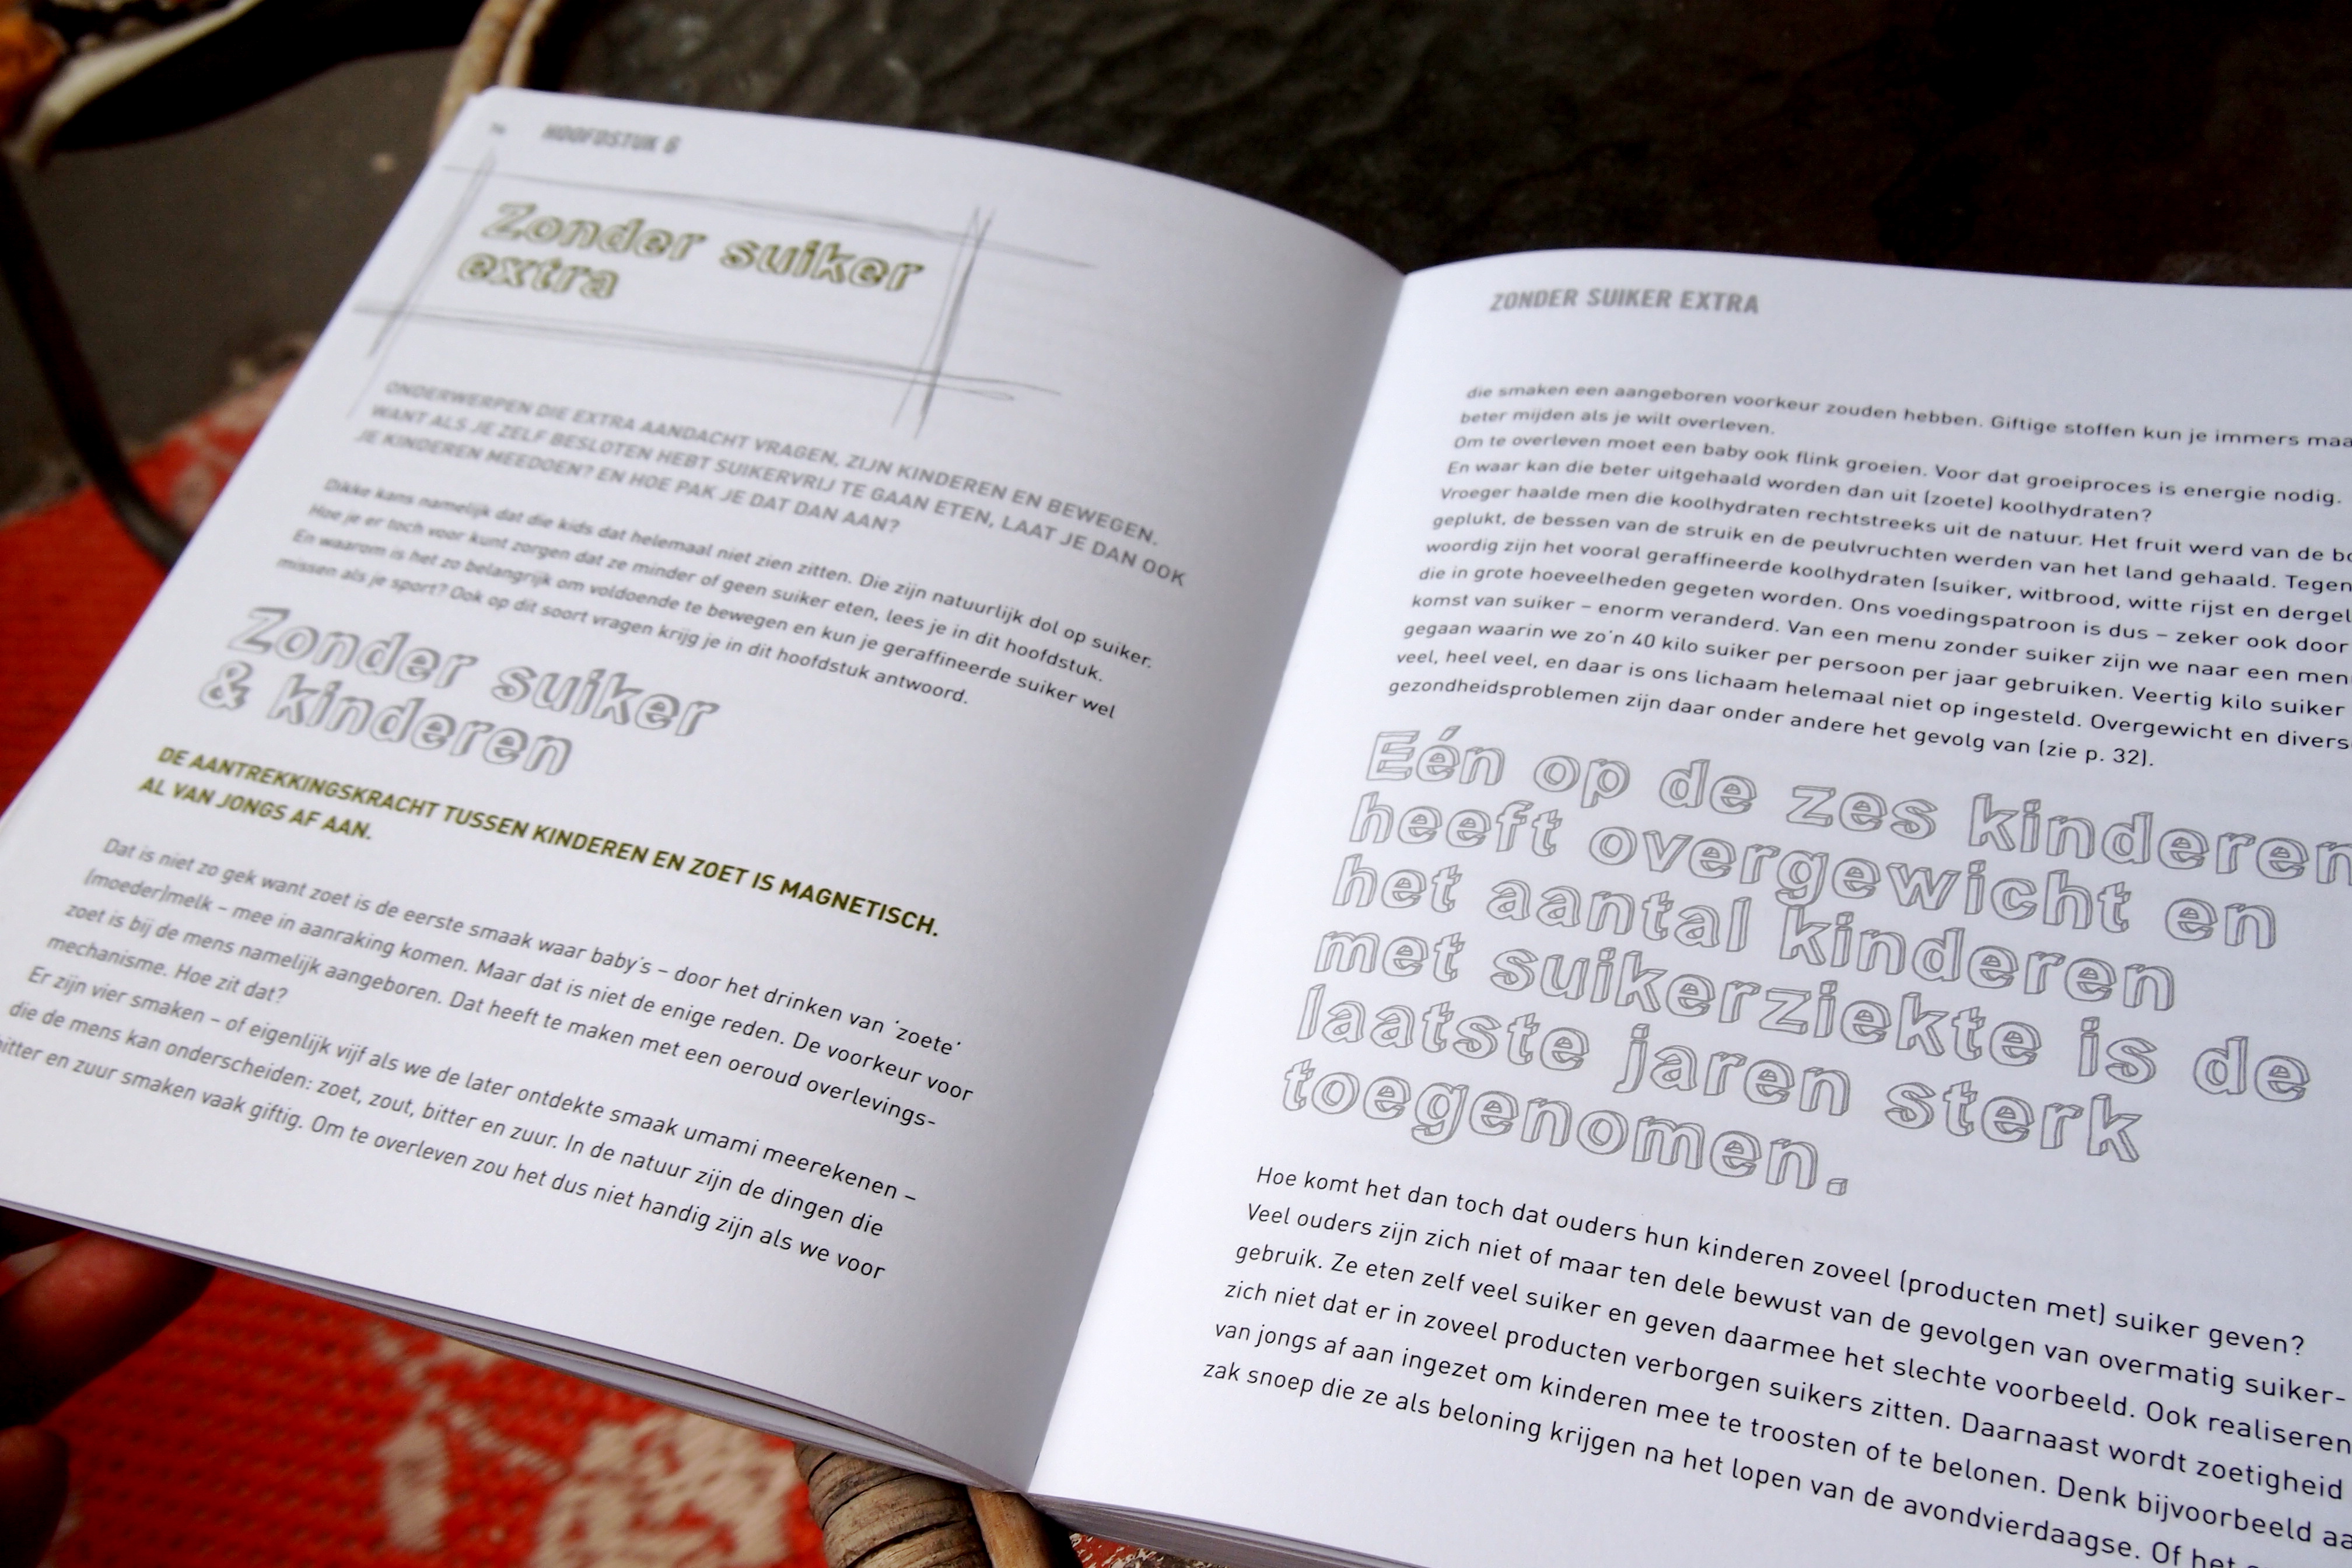 HOOFDSTUK 6
Zonder suiker
extra
ONDERWERPEN DIE EXTRA AANDACHT VRAGEN, ZIJN KINDEREN EN BEWEGEN.
WANT ALS JE ZELF BESLOTEN HEBT SUIKERVRIJ TE GAAN ETEN, LAAT JE DAN OOK
JE KINDEREN MEEDOEN? EN HOE PAK JE DAT DAN AAN?
Dikke kans namelijk dat die kids dat helemaal niet zien zitten. Die zijn natuurlijk dol op suiker.
Hoe je er toch voor kunt zorgen dat ze minder of geen suiker eten, lees je in dit hoofdstuk.
En waarom is het zo belangrijk om voldoende te bewegen en kun je geraffineerde suiker wel
missen als je sport? Ook op dit soort vragen krijg je in dit hoofdstuk antwoord.
Zonder suiker
& kinderen
DE AANTREKKINGSKRACHT TUSSEN KINDEREN EN ZOET IS MAGNETISCH.
AL VAN JONGS AF AAN.
Dat is niet zo gek want zoet is de eerste smaak waar baby's – door het drinken van 'zoete'
(moeder)melk – mee in aanraking komen. Maar dat is niet de enige reden. De voorkeur voor
zoet is bij de mens namelijk aangeboren. Dat heeft te maken met een oeroud overlevings-
mechanisme. Hoe zit dat?
Er zijn vier smaken – of eigenlijk vijf als we de later ontdekte smaak umami meerekenen –
die de mens kan onderscheiden: zoet, zout, bitter en zuur. In de natuur zijn de dingen die
bitter en zuur smaken vaak giftig. Om te overleven zou het dus niet handig zijn als we voor
ZONDER SUIKER EXTRA
die smaken een aangeboren voorkeur zouden hebben. Giftige stoffen kun je immers maa
beter mijden als je wilt overleven.
Om te overleven moet een baby ook flink groeien. Voor dat groeiproces is energie nodig.
En waar kan die beter uitgehaald worden dan uit (zoete) koolhydraten?
Vroeger haalde men die koolhydraten rechtstreeks uit de natuur. Het fruit werd van de bo
geplukt, de bessen van de struik en de peulvruchten werden van het land gehaald. Tegen
woordig zijn het vooral geraffineerde koolhydraten (suiker, witbrood, witte rijst en dergel
die in grote hoeveelheden gegeten worden. Ons voedingspatroon is dus – zeker ook door
komst van suiker – enorm veranderd. Van een menu zonder suiker zijn we naar een men
gegaan waarin we zo'n 40 kilo suiker per persoon per jaar gebruiken. Veertig kilo suiker
veel, heel veel, en daar is ons lichaam helemaal niet op ingesteld. Overgewicht en divers
gezondheidsproblemen zijn daar onder andere het gevolg van (zie p. 32).
Eén op de zes kinderen
heeft overgewicht en
het aantal kinderen
met suikerziekte is de
laatste jaren sterk
toegenomen.
Hoe komt het dan toch dat ouders hun kinderen zoveel (producten met) suiker geven?
Veel ouders zijn zich niet of maar ten dele bewust van de gevolgen van overmatig suiker-
gebruik. Ze eten zelf veel suiker en geven daarmee het slechte voorbeeld. Ook realiseren
zich niet dat er in zoveel producten verborgen suikers zitten. Daarnaast wordt zoetigheid
van jongs af aan ingezet om kinderen mee te troosten of te belonen. Denk bijvoorbeeld aa
zak snoep die ze als beloning krijgen na het lopen van de avondvierdaagse. Of het